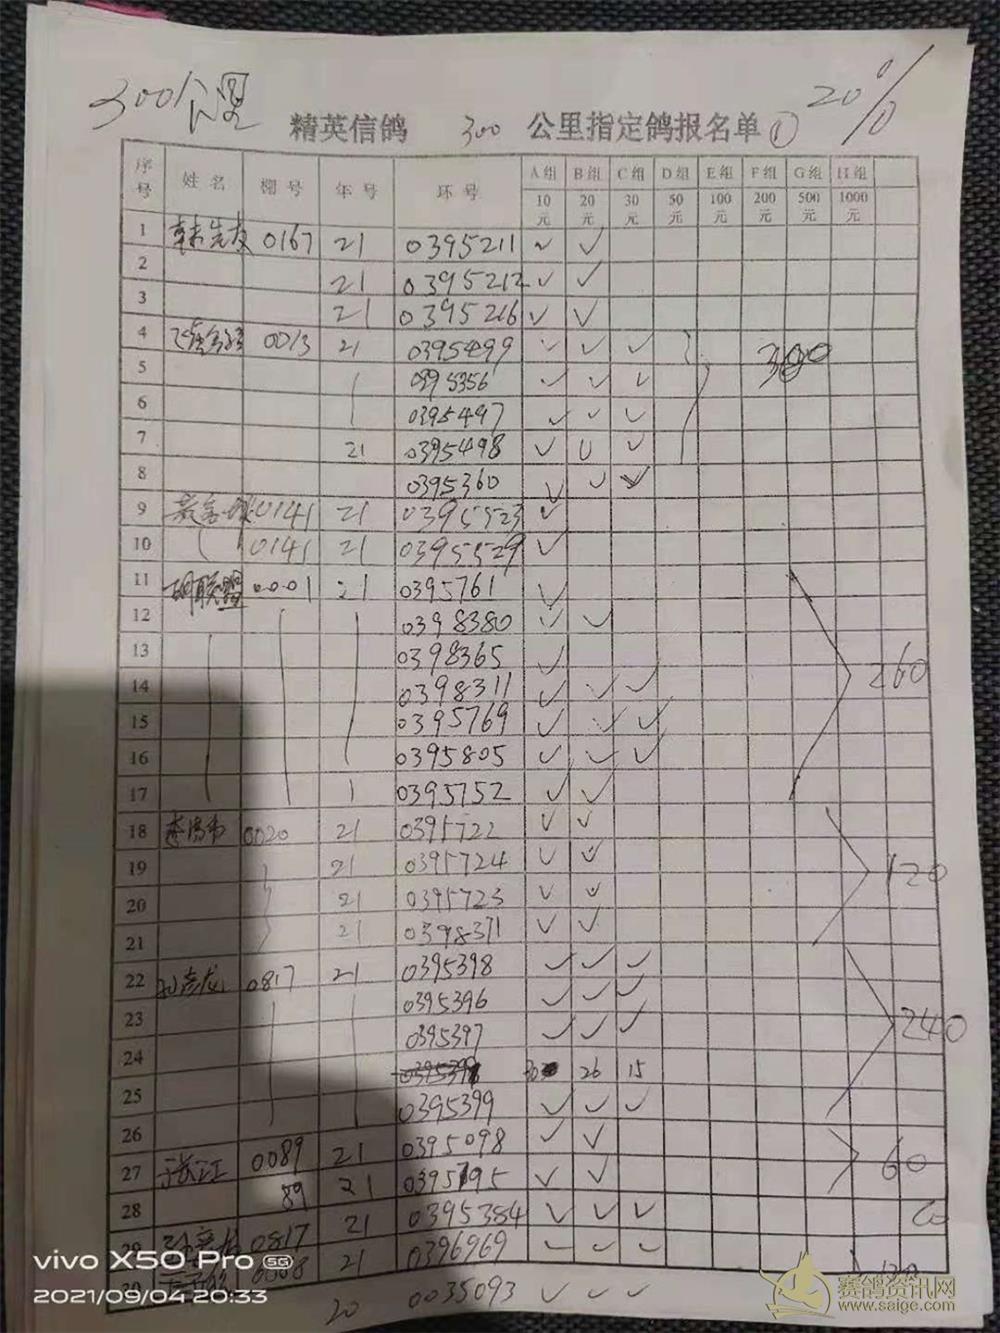 300公里 20%
精英信鸽 300 公里指定鸽报名单①
序号 姓名 棚号 年号 环号 A组 B组 C组 D组 E组 F组 G组 H组
10元 20元 30元 50元 100元 200元 500元 1000元
1 0167 21 0395211 ✓ ✓
2 21 0395212 ✓ ✓
3 21 0395216 ✓ ✓
4 0013 21 0395499 ✓ ✓ ✓ 300
5 0395356 ✓ ✓ ✓
6 0395497 ✓ ✓ ✓
7 21 0395498 ✓ ✓ ✓
8 0395360 ✓ ✓ ✓
9 0141 21 0395523 ✓
10 0141 21 0395529 ✓
11 胡联盟 0001 21 0395761 ✓
12 0398380 ✓ ✓
13 0398365 ✓
14 0398311 ✓ ✓ ✓ 260
15 0395769 ✓ ✓ ✓
16 0395805 ✓ ✓ ✓
17 0395752 ✓ ✓
18 0020 21 0395722 ✓ ✓
19 21 0395724 ✓ ✓ 120
20 21 0395723 ✓ ✓
21 21 0398371 ✓ ✓
22 孙彦龙 0817 21 0395398 ✓ ✓ ✓
23 0395396 ✓ ✓ ✓
0395397 ✓ ✓ ✓ 240
24 26 15
25 0395399 ✓ ✓ ✓
26 0395098 ✓ ✓
27 张江 0089 21 60
89 21 0395795 ✓ ✓
28 0395384 ✓ ✓ ✓
29 0817 21
0008 21 0396969 ✓ ✓ ✓
20 0035093 ✓ ✓ ✓
vivo X50 Pro 5G
2021/09/04 20:33
赛鸽资讯网
www.saige.com